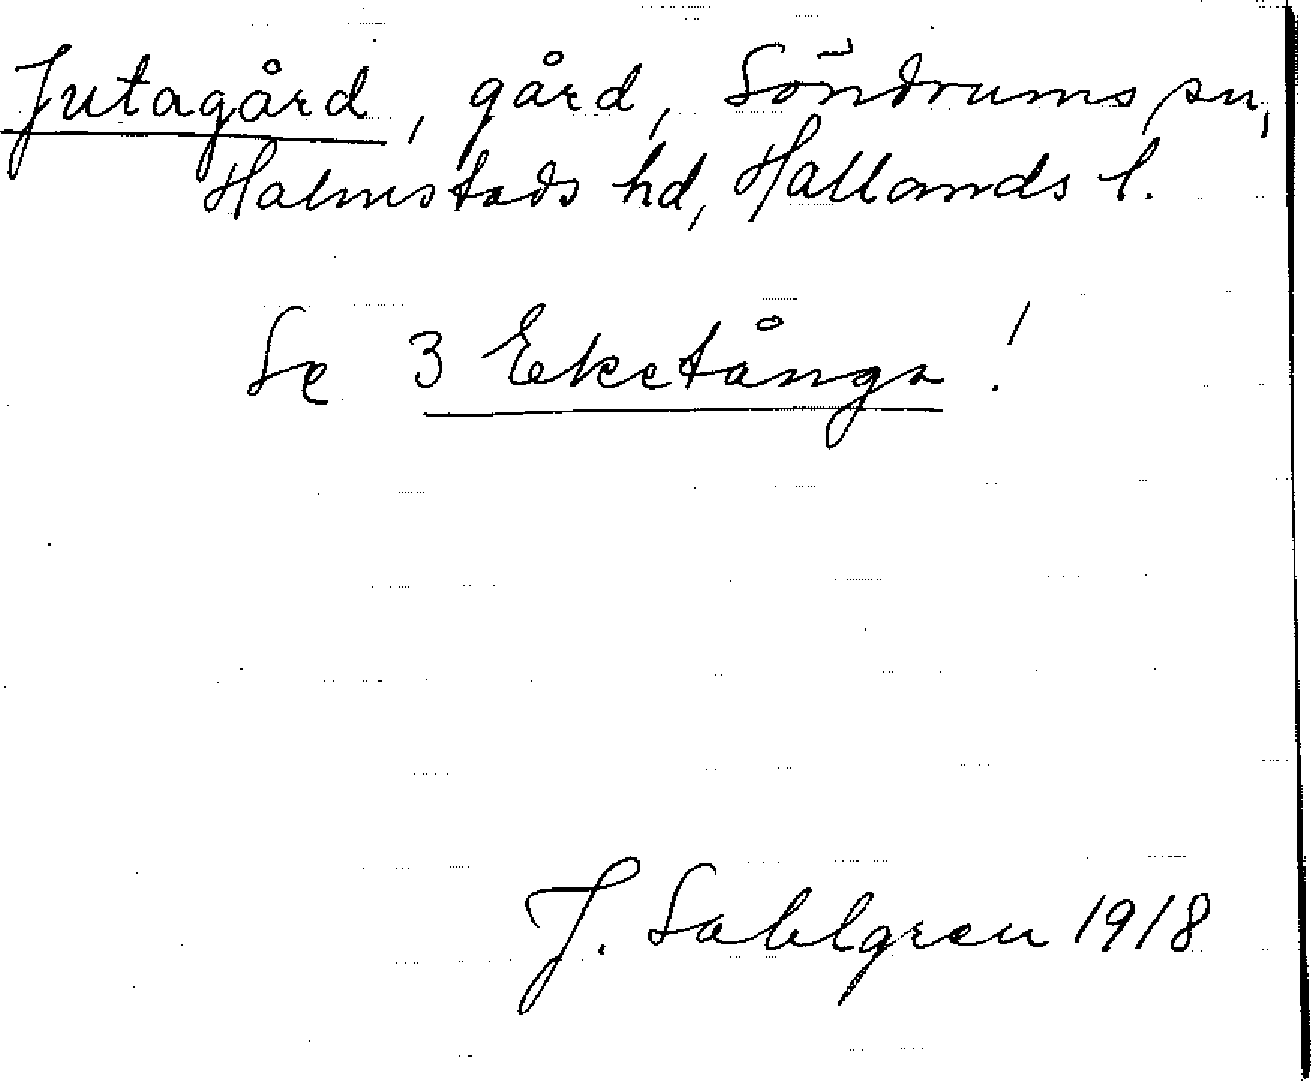 Jutagård, gård, Söndrums sn,
Halmstads hd, Hallands l.
Se 3 Eketånga!
J. Sahlgren 1918